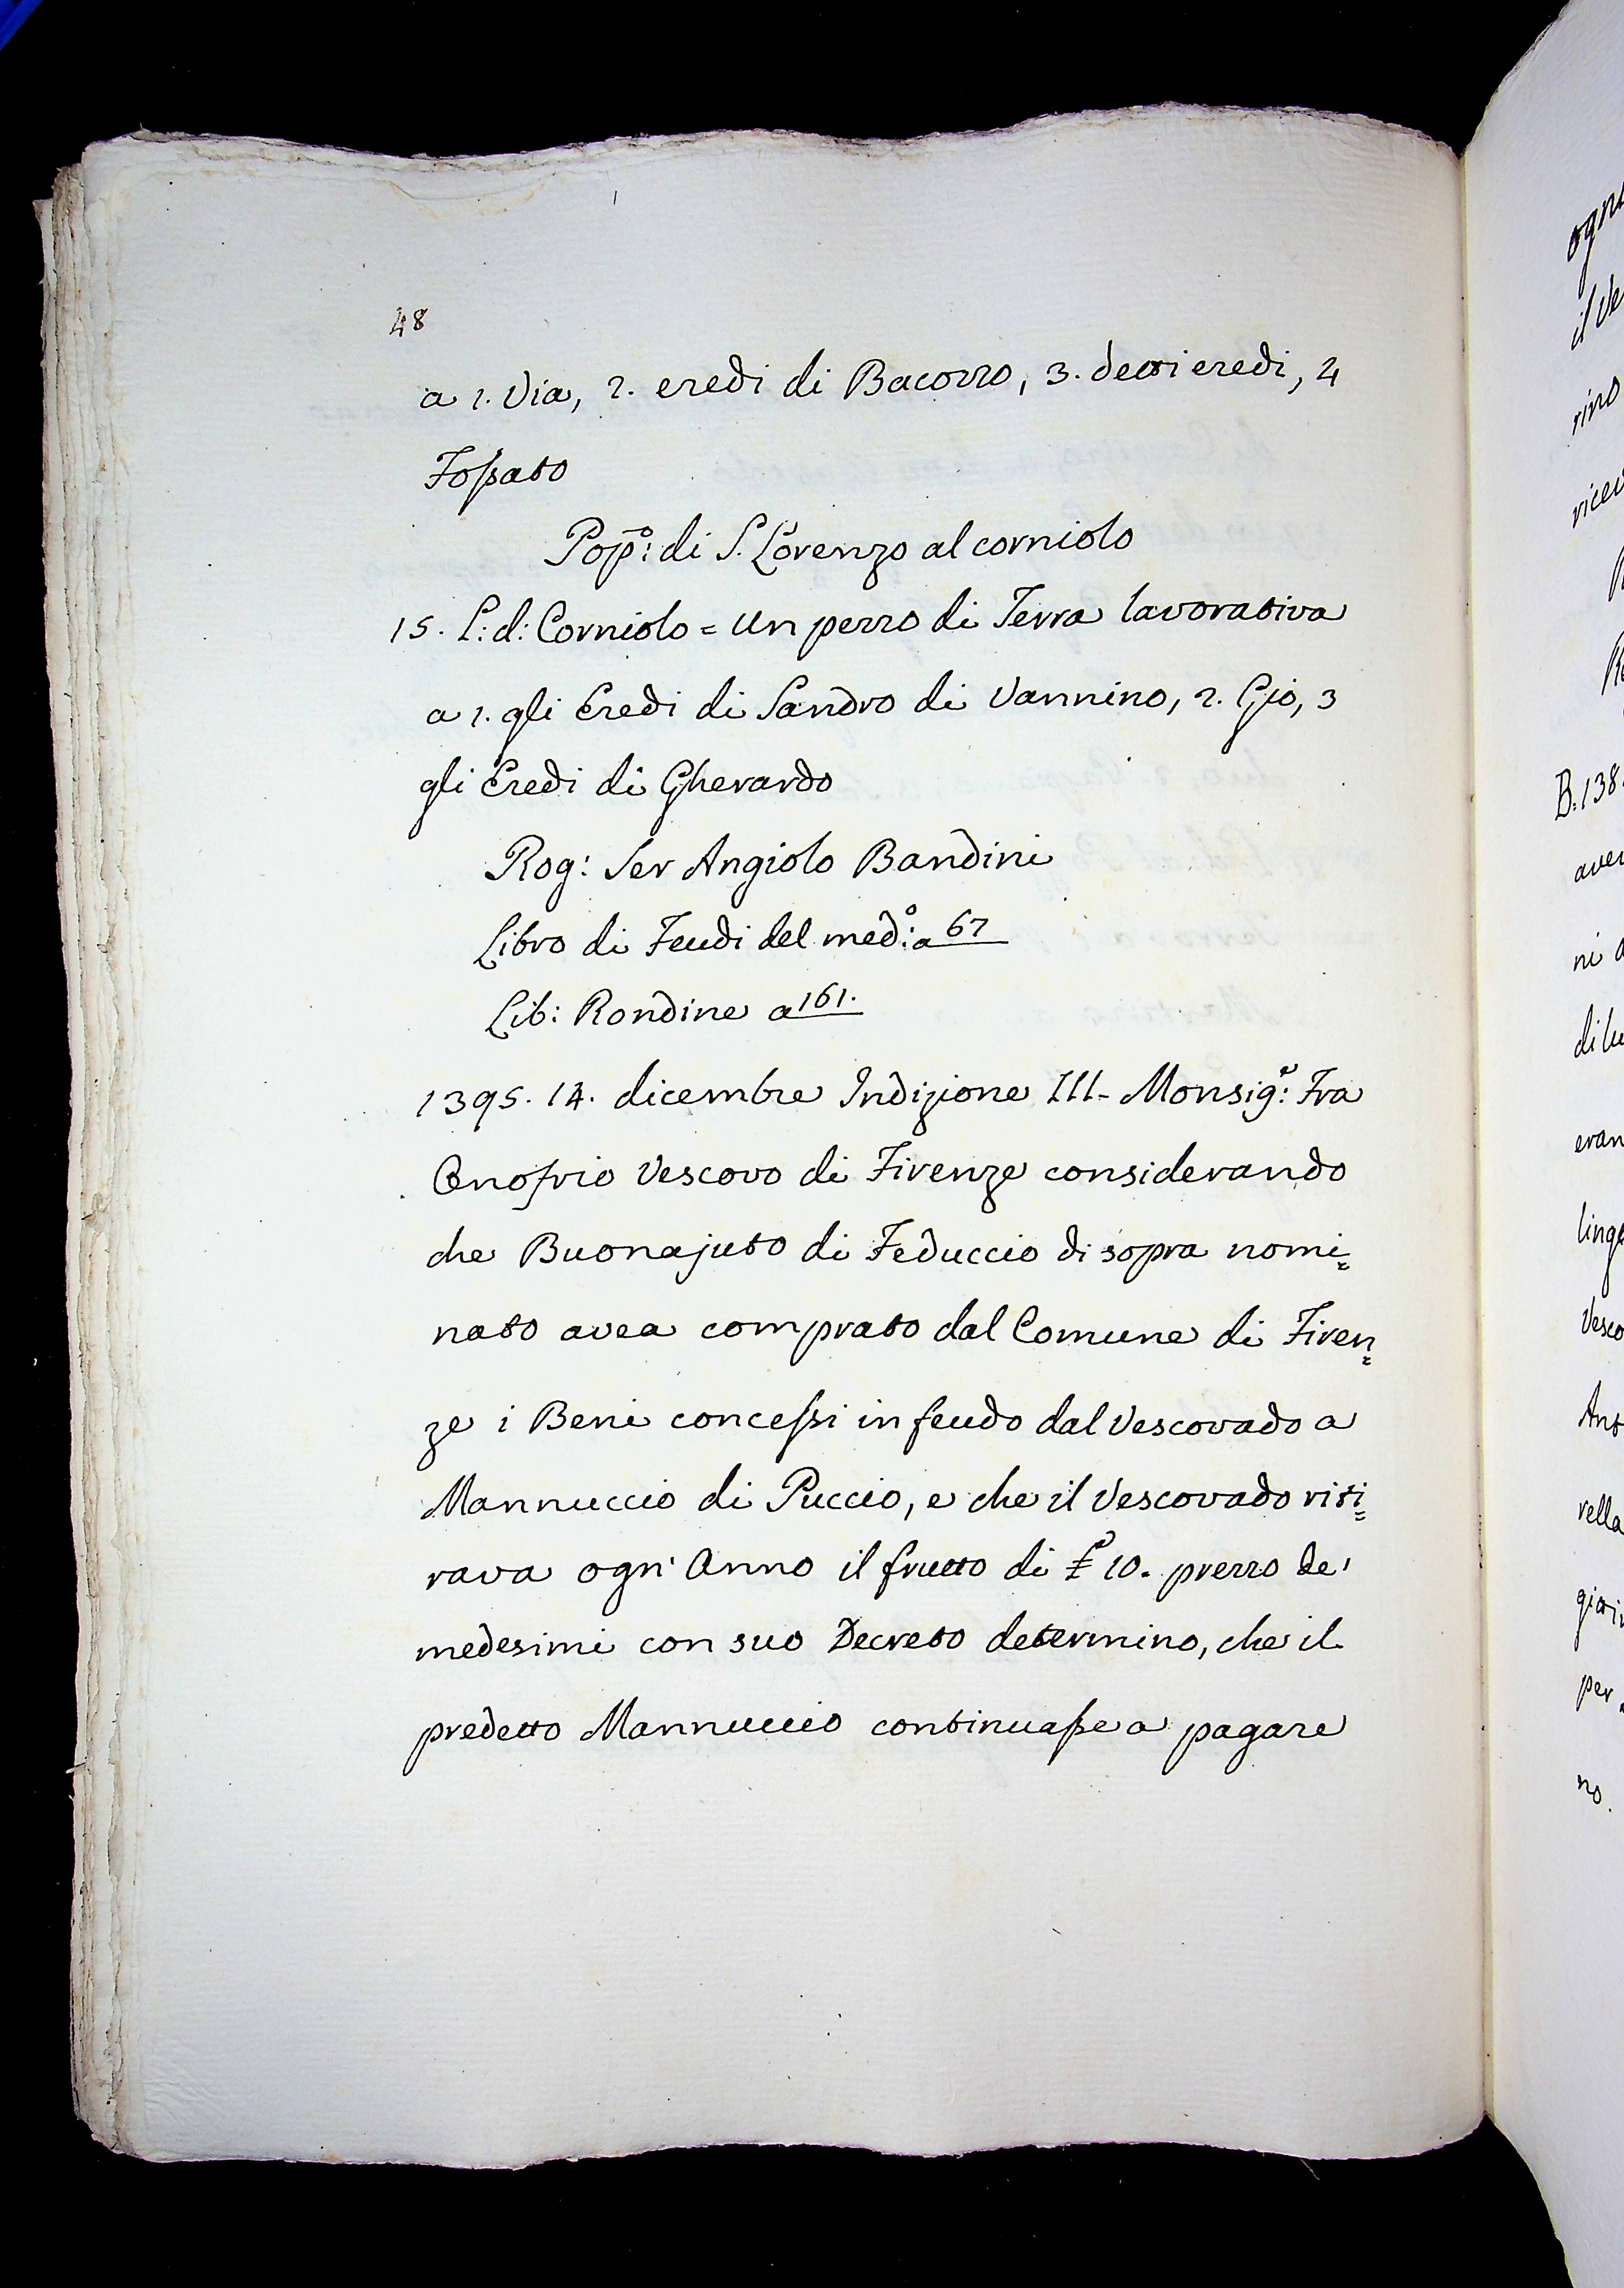 48
a 1. Via, 2. eredi di Bacozzo, 3. detti eredi, 4
Fossato
Pop:º di S. Lorenzo al corniolo
15. L: d: Corniolo = Un pezzo di Terra lavorativa
a 1. gli Eredi di Sandro di Vannino, 2. Gio, 3
gli Eredi di Gherardo
Rog: Ser Angiolo Bandini
Libro di Feudi del med:º a 67
Lib: Rondine a 161.
1395. 14. dicembre Indizione III- Monsig:e Fra
Onofrio Vescovo di Firenze considerando
che Buonajuto di Feduccio di sopra nomi=
nato avea comprato dal Comune di Firen=
ze i Beni concessi in feudo dal Vescovado a
Mannuccio di Puccio, e che il Vescovado riti=
rava ogn' Anno il frutto di £ 10. prezzo de'
medesimi con suo Decreto determino, che il
predetto Mannuccio continuasse a pagare
ogni
il Ve
rino
B. 138
ni
di lu
eran
Vesco
Ant
rella
per
no.